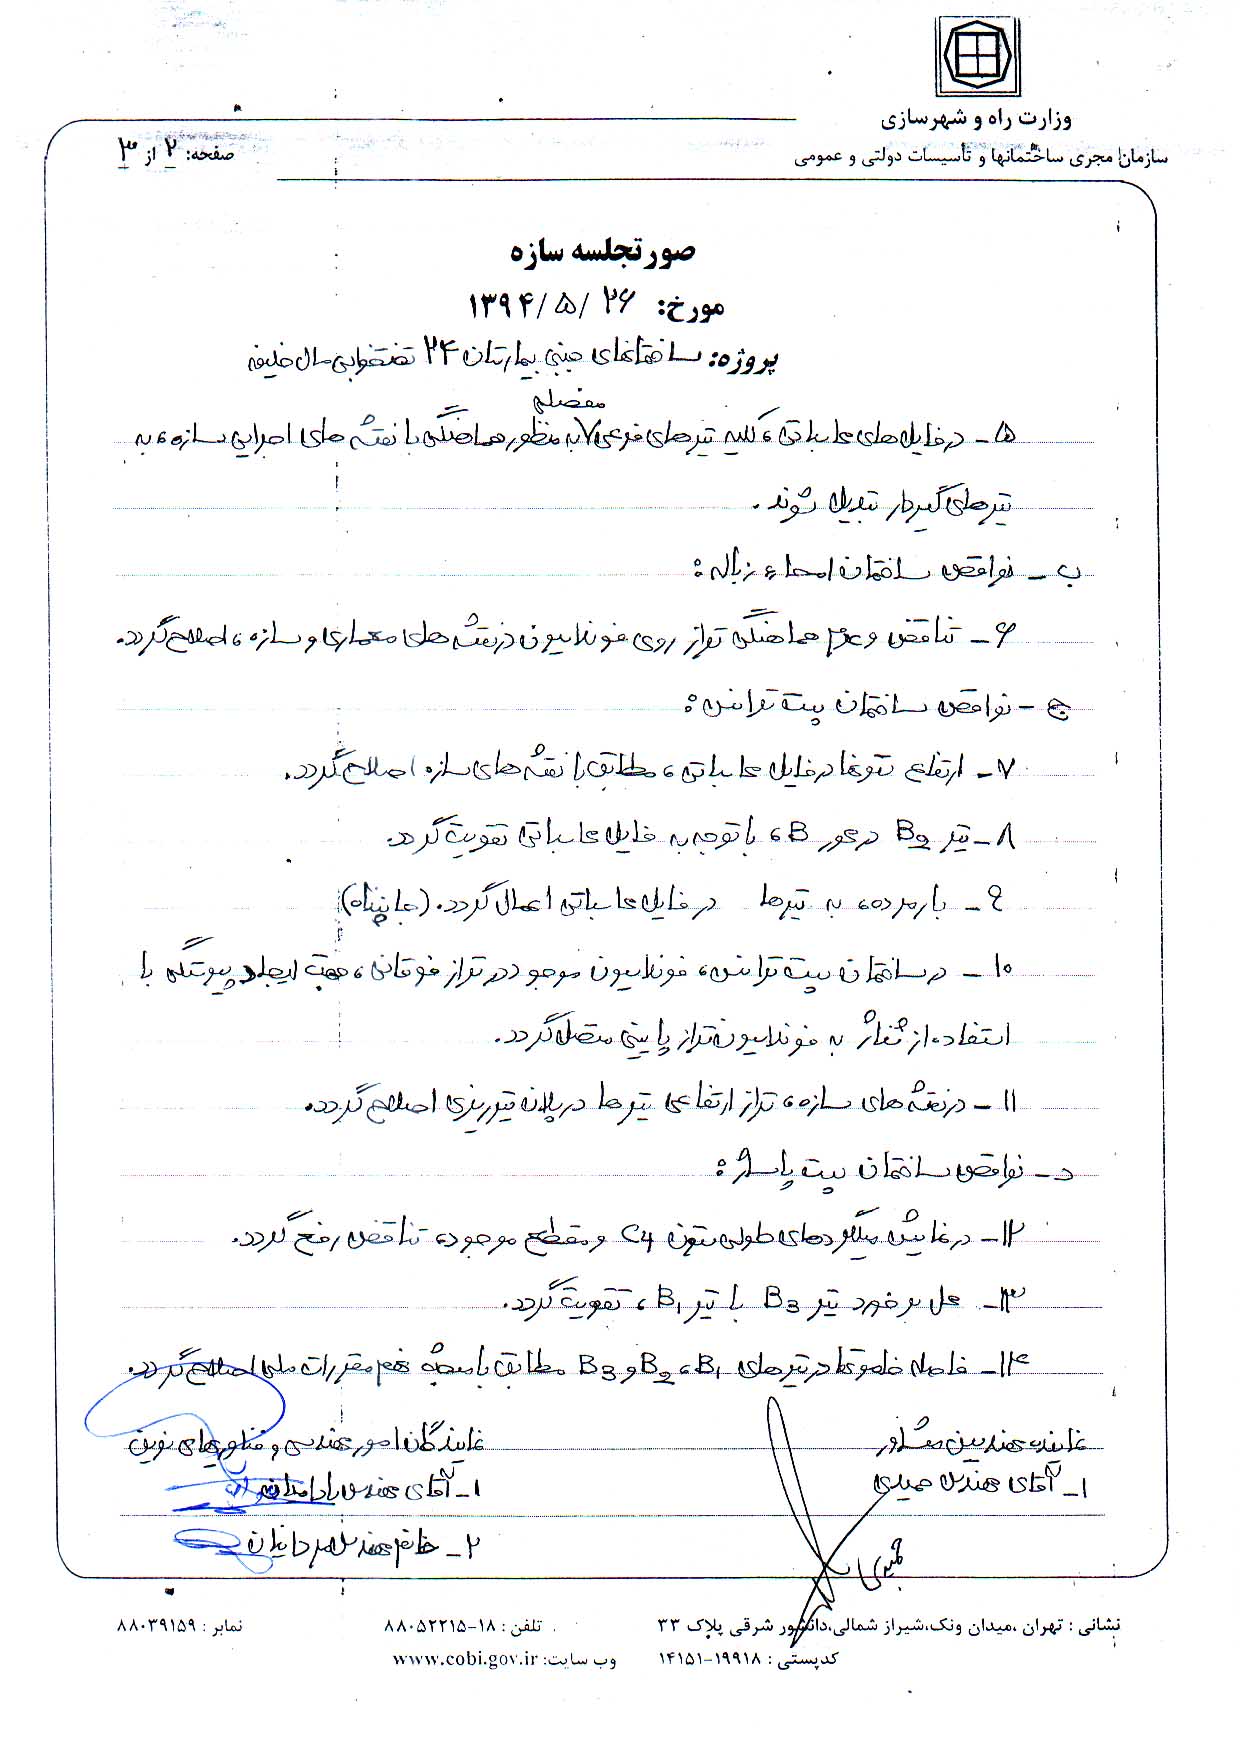 وزارت راه و شهرسازی
سازمان مجری ساختمانها و تأسیسات دولتی و عمومی
صفحه: ۲ از ۳
صورتجلسه سازه
مورخ: ۱۳۹۴/۵/۲۶
پروژه: ساختمانهای جنبی بیمارستان ۲۴ تختخوابی سال خلیفه
مفصلی
۵- در فایل های محاسباتی، کلیه تیرهای فرعی ۷ به منظور هماهنگی با نقشه های اجرایی سازه، به
تیرهای گیردار تبدیل شوند.
ب- نواقص ساختمان امحاء زباله:
۶- تناقض و عدم هماهنگی تراز روی فونداسیون در نقشه های معماری و سازه، اصلاح گردد.
ج- نواقص ساختمان پست ترانس:
۷- ارتفاع ستونها در فایل محاسباتی، مطابق با نقشه های سازه اصلاح گردد.
۸- تیر B2 در محور B، با توجه به فایل محاسباتی تقویت گردد.
۹- بار مرده، به تیرها در فایل محاسباتی اعمال گردد. (جانپناه)
۱۰- در ساختمان پست ترانس، فونداسیون موجود در تراز فوقانی، جهت ایجاد پیوستگی با
استفاده از شناژ به فونداسیون تراز پایینی متصل گردد.
۱۱- در نقشه های سازه، تراز ارتفاعی تیرها در پلان تیرریزی اصلاح گردد.
د- نواقص ساختمان پست پاساژ:
۱۲- در نمایش میلگردهای طولی ستون C4 و مقطع موجود، تناقض رفع گردد.
۱۳- محل برخورد تیر B3 با تیر B1، تقویت گردد.
۱۴- فاصله خاموتها در تیرهای B1، B2 و B3 مطابق با مبحث نهم مقررات ملی اصلاح گردد.
نماینده مهندسین مشاور
۱- آقای مهندس حمیدی
نمایندگان امور مهندسی و فناوریهای نوین
۱- آقای مهندس
۲- خانم مهندس
حمیدی
نشانی : تهران ،میدان ونک،شیراز شمالی،دانشور شرقی پلاک ۳۳
تلفن : ۱۸-۸۸۰۵۲۲۱۵
نمابر : ۸۸۰۳۹۱۵۹
کدپستی : ۱۹۹۱۸-۱۴۱۵۱
وب سایت: www.cobi.gov.ir